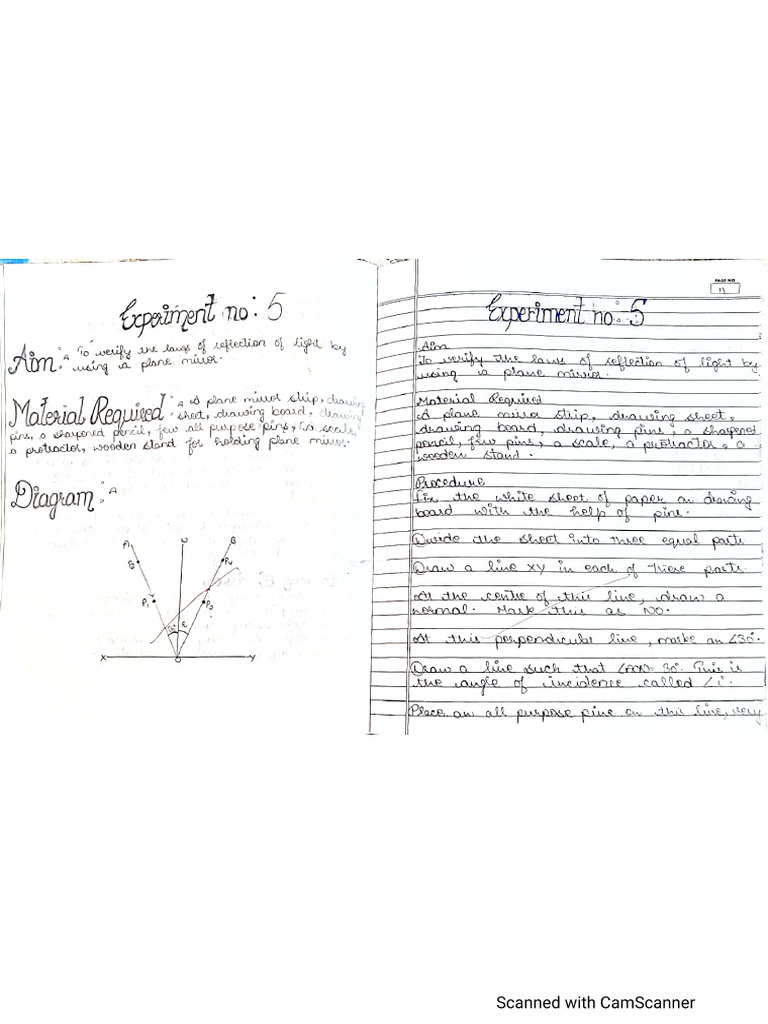 Experiment no: 5
Aim: To verify the laws of reflection of light by
using a plane mirror.
Material Required: A plane mirror strip, drawing
sheet, drawing board, drawing
pins, a sharpened pencil, few all purpose pins, a scale,
a protractor, wooden stand for holding plane mirror.
Diagram:
A N B
P2 P4
P1 P3
i r
X O Y
PAGE NO
11
Experiment no:-5
Aim
To verify the laws of reflection of light by
using a plane mirror.
Material Required
A plane mirror strip, drawing sheet,
drawing board, drawing pins, a sharpened
pencil, few pins, a scale, a protractor, a
wooden stand.
Procedure
Fix the white sheet of paper on drawing
board with the help of pins.
Divide the sheet into three equal parts
Draw a line XY in each of these parts.
At the centre of this line, draw a
normal. Mark this as NO.
At this perpendicular line, make an ∠30°.
Draw a line such that = 30°. This is
the angle of incidence called ∠i.
Place an all purpose pins on this line, very
Scanned with CamScanner